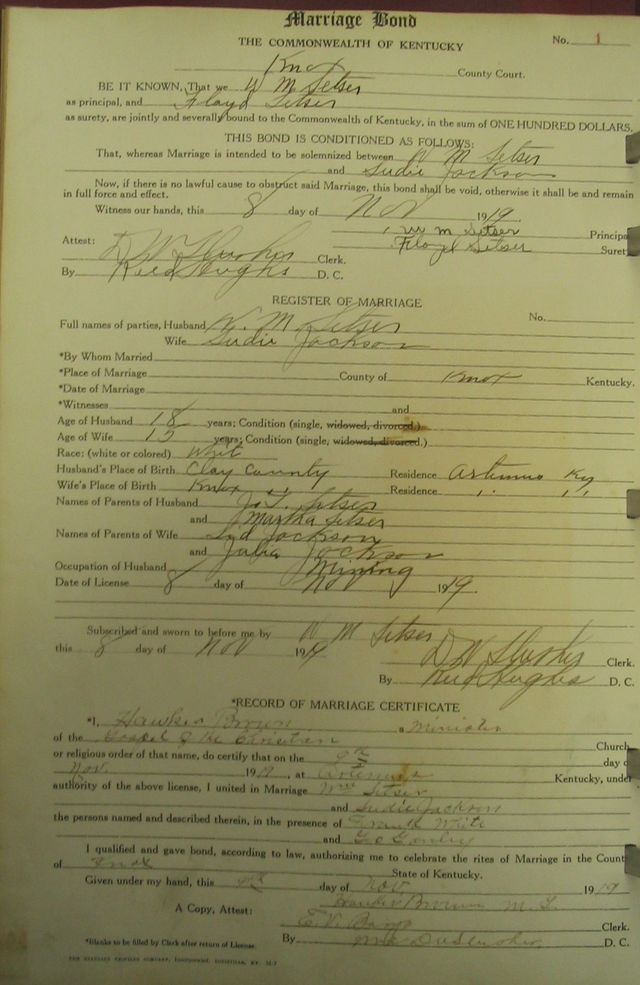 Marriage Bond
No. 1
THE COMMONWEALTH OF KENTUCKY
Knox County Court.
BE IT KNOWN, That we W M Setser
as principal, and Floyd Setser
as surety, are jointly and severally bound to the Commonwealth of Kentucky, in the sum of ONE HUNDRED DOLLARS.
THIS BOND IS CONDITIONED AS FOLLOWS:
That, whereas Marriage is intended to be solemnized between W M Setser
and Sudie Jackson
Now, if there is no lawful cause to obstruct said Marriage, this bond shall be void, otherwise it shall be and remain
in full force and effect.
Witness our hands, this 8 day of Nov 1919
W M Setser Principa
Floyd Setser Suret
Attest: D W Clerk.
By Reed Hughs D. C.
REGISTER OF MARRIAGE
No.
Full names of parties, Husband W. M Setser
Wife Sudie Jackson
*By Whom Married
*Place of Marriage County of Knox Kentucky.
*Date of Marriage
*Witnesses and
Age of Husband 18 years; Condition (single, widowed, divorced.)
Age of Wife 15 years; Condition (single, widowed, divorced.)
Race: (white or colored) Whit
Husband's Place of Birth Clay County Residence Artimus Ky
Wife's Place of Birth Knox " Residence " "
Names of Parents of Husband Setser
and Martha Setser
Names of Parents of Wife Jackson
and Julia Jackson
Occupation of Husband Mining
Date of License 8 day of Nov 1919.
Subscribed and sworn to before me by W M Setser
this 8 day of Nov 1919
D W Clerk.
By Reed Hughes D. C.
*RECORD OF MARRIAGE CERTIFICATE
*I, Brown a Minister
of the Gospel of the Christian Church
or religious order of that name, do certify that on the 9th day o
Nov. 1919, at Artemus Kentucky, under
authority of the above license, I united in Marriage Wm Setser
and Sudie Jackson
the persons named and described therein, in the presence of Frank
and Geo
I qualified and gave bond, according to law, authorizing me to celebrate the rites of Marriage in the Count
of Knox State of Kentucky.
Given under my hand, this day of Nov. 1919
Brown M. G.
A Copy, Attest: E. V. Clerk.
By D. C.
*Blanks to be filled by Clerk after return of License.